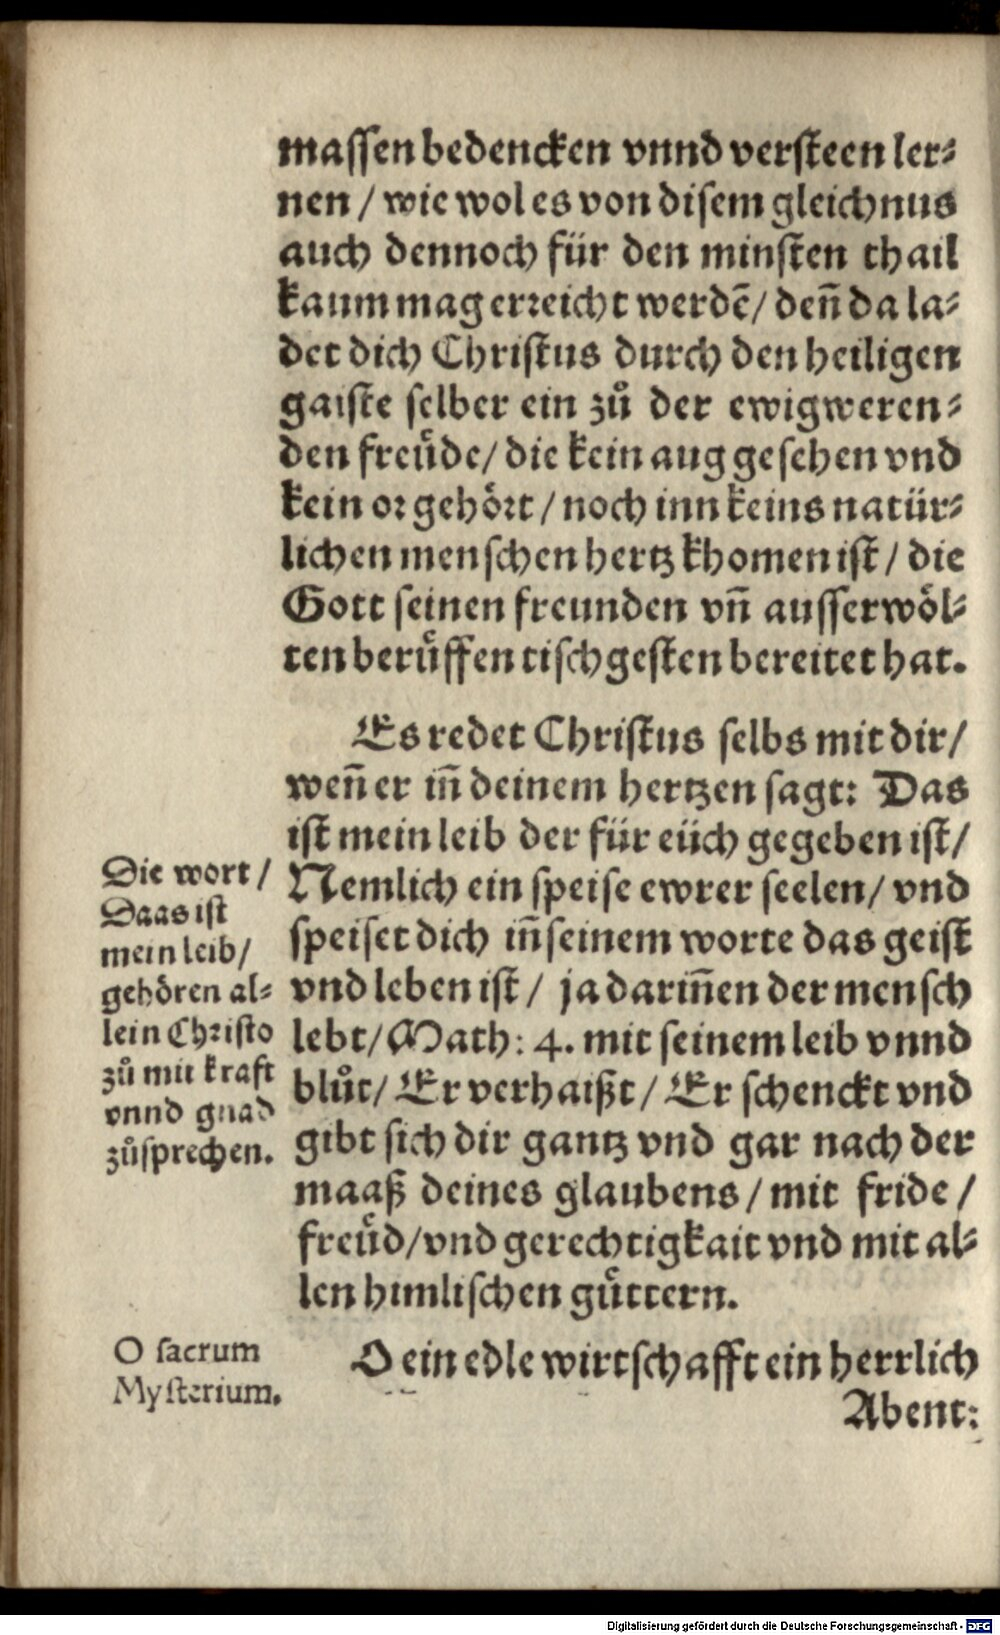 massen bedencken vnnd versteen ler⸗
nen / wie wol es von disem gleichnus
auch dennoch für den minsten thail
kaum mag erreicht werdē / deñ da la⸗
det dich Christus durch den heiligen
gaiste selber ein zů der ewigweren⸗
den freüde / die kein aug gesehen vnd
kein or gehört / noch inn keins natür⸗
lichen menschen hertz khomen ist / die
Gott seinen freunden vñ ausserwöl⸗
ten berůffen tischgesten bereitet hat.
Es redet Christus selbs mit dir /
weñ er iñ deinem hertzen sagt: Das
ist mein leib der für eüch gegeben ist /
Nemlich ein speise ewrer seelen / vnd
speiset dich iñ seinem worte das geist
vnd leben ist / ja dariñen der mensch
lebt / Math: 4. mit seinem leib vnnd
blůt / Er verhaißt / Er schenckt vnd
gibt sich dir gantz vnd gar nach der
maaß deines glaubens / mit fride /
freüd / vnd gerechtigkait vnd mit al⸗
len himlischen güttern.
Die wort /
Daas ist
mein leib /
gehören al⸗
lein Christo
zů mit kraft
vnnd gnad
zůsprechen.
O sacrum
Mysterium.
O ein edle wirtschafft ein herrlich
Abent:
Digitalisierung gefördert durch die Deutsche Forschungsgemeinschaft - DFG